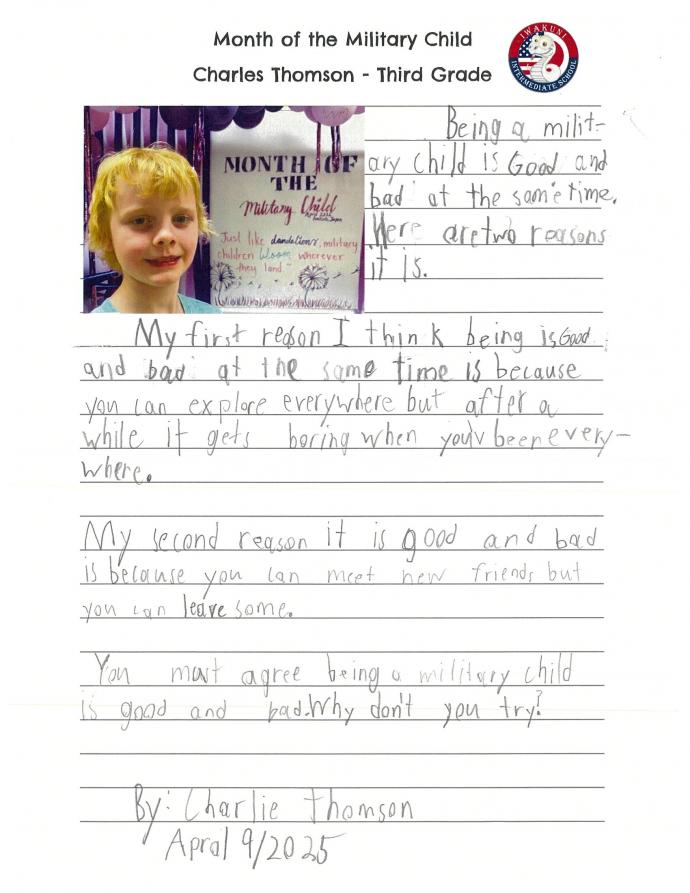 Month of the Military Child
Charles Thomson - Third Grade
IWAKUNI
INTERMEDIATE SCHOOL
MONTH OF
THE
Military Child
Just like dandelions, military
children bloom wherever
they land
Being a milit-
ary child is Good and
bad at the same time.
Here are two reasons
it is.
My first reason I think being is Good
and bad at the same time is because
you can explore everywhere but after a
while it gets boring when you'v been every-
where.
My second reason it is good and bad
is because you can meet new friends but
you can leave some.
You must agree being a military child
is good and bad. Why don't you try?
By: Charlie Thomson
April 9/2025